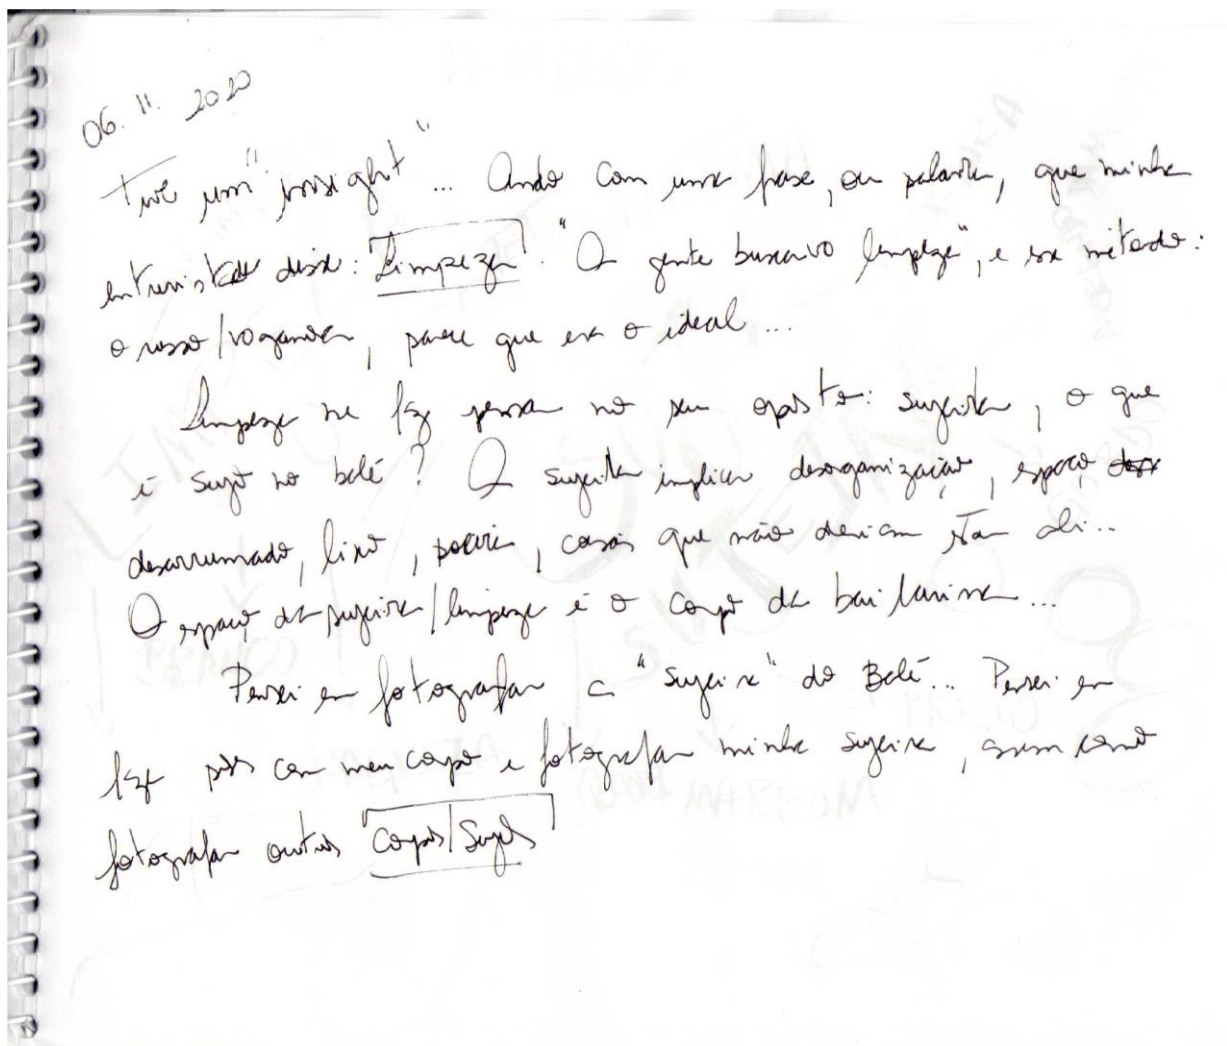 06. 11. 2020
Tive um "insight"... Ando com uma frase, ou palavra, que minha
entrevistada disse: Limpeza. "A gente buscava limpeza", e esse método:
o russo/vaganova, parece que era o ideal...
Limpeza me faz pensar no seu oposto: sujeira, o que
é sujo no balé? A sujeira implica desorganização, espaço
desarrumado, lixo, poeira, coisas que não deviam estar ali...
O espaço da sujeira/limpeza é o corpo da bailarina...
Pensei em fotografar a "sujeira" do Balé... Pensei em
fazer poses com meu corpo e fotografar minha sujeira, assim como
fotografar outros Corpos/Sujos